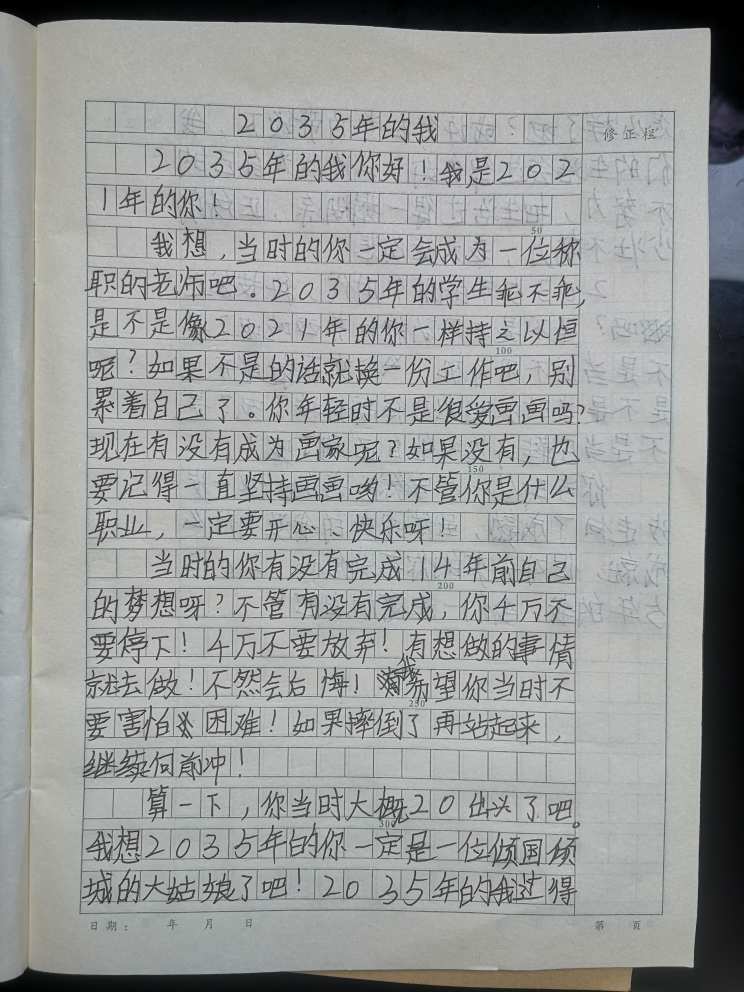 2035年的我
修正栏
2035年的我你好！我是202
1年的你！
50
我想，当时的你一定会成为一位称
职的老师吧。2035年的学生乖不乖，
是不是像2021年的你一样持之以恒
100
呢？如果不是的话就换一份工作吧，别
累着自己了。你年轻时不是很爱画画吗？
现在有没有成为画家呢？如果没有，也
要记得一直坚持画画哟！不管你是什么
150
职业，一定要开心、快乐呀！
当时的你有没有完成14年前自己
的梦想呀？不管有没有完成，你千万不
200
要停下！千万不要放弃！有想做的事情
就去做！不然会后悔！我希望你当时不
250
要害怕困难！如果摔倒了再站起来，
继续向前冲！
算一下，你当时大概20出头了吧。
300
我想2035年的你一定是一位倾国倾
城的大姑娘了吧！2035年的我过得
日期： 年 月 日 第 页